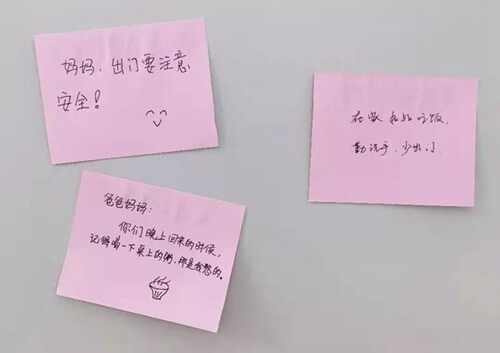 妈妈，出门要注意
安全！
爸爸妈妈：
你们晚上回来的时候，
记得喝一下桌上的粥，那是我熬的。
在家 好好吃饭，
勤洗手，少出门